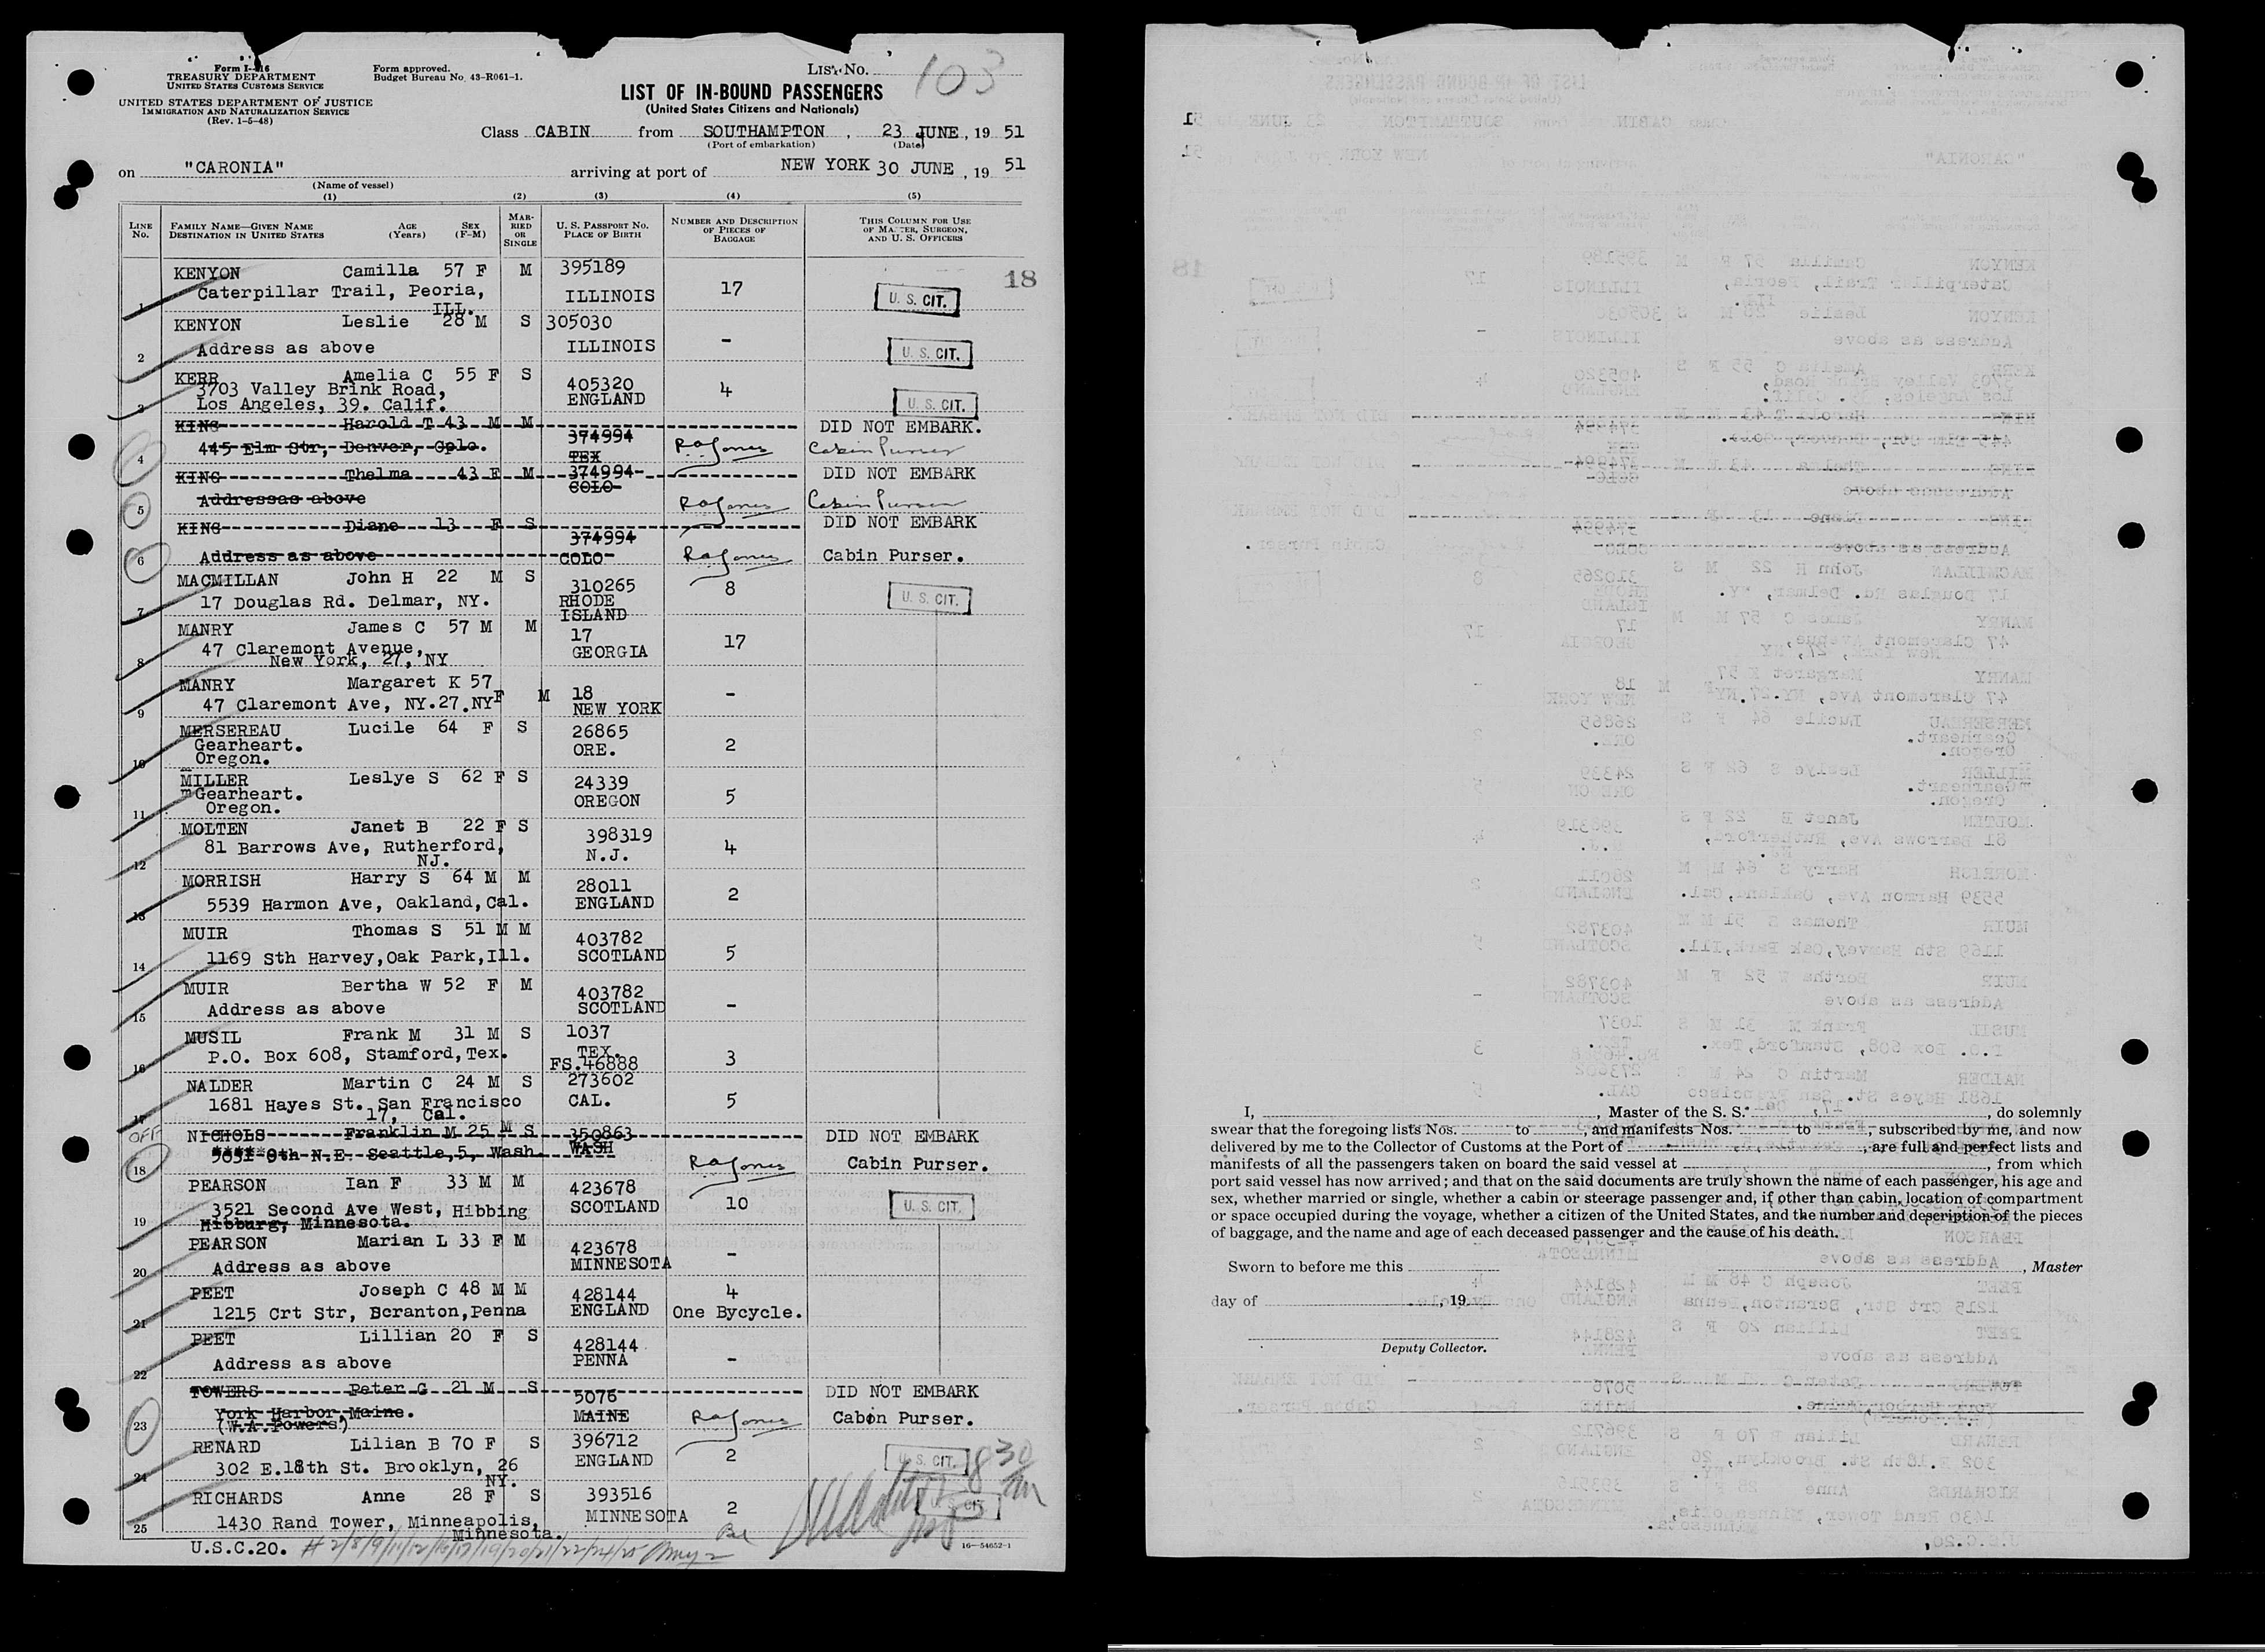 Form I-416
TREASURY DEPARTMENT
UNITED STATES CUSTOMS SERVICE
UNITED STATES DEPARTMENT OF JUSTICE
IMMIGRATION AND NATURALIZATION SERVICE
(Rev. 1-5-48)
Form approved.
Budget Bureau No. 43-R061-1.
LIST No. 103
LIST OF IN-BOUND PASSENGERS
(United States Citizens and Nationals)
Class CABIN from SOUTHAMPTON, 23 JUNE, 19 51
(Port of embarkation) (Date)
on "CARONIA" arriving at port of NEW YORK 30 JUNE, 19 51
(Name of vessel)
(1) (2) (3) (4) (5)
LINE No. FAMILY NAME—GIVEN NAME DESTINATION IN UNITED STATES AGE (Years) SEX (F-M) MARRIED OR SINGLE U. S. PASSPORT No. PLACE OF BIRTH NUMBER AND DESCRIPTION OF PIECES OF BAGGAGE THIS COLUMN FOR USE OF MASTER, SURGEON, AND U. S. OFFICERS
18
1 KENYON Camilla 57 F M 395189
Caterpillar Trail, Peoria, ILL. ILLINOIS 17 U. S. CIT.
2 KENYON Leslie 28 M S 305030
Address as above ILLINOIS - U. S. CIT.
3 KERR Amelia C 55 F S 405320
3703 Valley Brink Road, ENGLAND 4
Los Angeles, 39. Calif. U. S. CIT.
4 KING Harold T 43 M M 374994 DID NOT EMBARK.
445 Elm Str, Denver, Colo. TEX RAJones Cabin Purser
5 KING Thelma 43 F M 374994 DID NOT EMBARK
Addressas above COLO RAJones Cabin Purser
6 KING Diane 13 F S 374994 DID NOT EMBARK
Address as above COLO RAJones Cabin Purser.
7 MACMILLAN John H 22 M S 310265 8
17 Douglas Rd. Delmar, NY. RHODE ISLAND U. S. CIT.
8 MANRY James C 57 M M 17
47 Claremont Avenue, GEORGIA 17
New York, 27, NY
9 MANRY Margaret K 57 F M 18 -
47 Claremont Ave, NY.27.NY NEW YORK
10 MERSEREAU Lucile 64 F S 26865
Gearheart. ORE. 2
Oregon.
11 MILLER Leslye S 62 F S 24339
Gearheart. OREGON 5
Oregon.
12 MOLTEN Janet B 22 F S 398319
81 Barrows Ave, Rutherford, NJ. N.J. 4
13 MORRISH Harry S 64 M M 28011
5539 Harmon Ave, Oakland, Cal. ENGLAND 2
14 MUIR Thomas S 51 M M 403782
1169 Sth Harvey,Oak Park,Ill. SCOTLAND 5
15 MUIR Bertha W 52 F M 403782
Address as above SCOTLAND -
16 MUSIL Frank M 31 M S 1037
P.O. Box 608, Stamford,Tex. TEX. 3
FS.46888
17 NALDER Martin C 24 M S 273602
1681 Hayes St. San Francisco CAL. 5
17, Cal.
OFF
18 NICHOLS Franklin M 25 M S 350863 DID NOT EMBARK
9th N.E. Seattle,5, Wash. WASH RAJones Cabin Purser.
19 PEARSON Ian F 33 M M 423678
3521 Second Ave West, Hibbing SCOTLAND 10 U. S. CIT.
Hibburg, Minnesota.
20 PEARSON Marian L 33 F M 423678
Address as above MINNESOTA -
21 PEET Joseph C 48 M M 428144 4
1215 Crt Str, Scranton,Penna ENGLAND One Bycycle.
22 PEET Lillian 20 F S 428144
Address as above PENNA -
23 TOWERS Peter G 21 M S 5076 DID NOT EMBARK
York Harbor, Maine. MAINE RAJones Cabin Purser.
(W.A.Powers)
24 RENARD Lilian B 70 F S 396712
302 E.18th St. Brooklyn, 26 NY. ENGLAND 2 U. S. CIT. 830
25 RICHARDS Anne 28 F S 393516
1430 Rand Tower, Minneapolis, MINNESOTA 2 U. S. CIT.
Minnesota.
U.S.C.20.
16—54652-1
I, , Master of the S. S. , do solemnly
swear that the foregoing lists Nos. to and manifests Nos. to , subscribed by me, and now
delivered by me to the Collector of Customs at the Port of , are full and perfect lists and
manifests of all the passengers taken on board the said vessel at , from which
port said vessel has now arrived; and that on the said documents are truly shown the name of each passenger, his age and
sex, whether married or single, whether a cabin or steerage passenger and, if other than cabin, location of compartment
or space occupied during the voyage, whether a citizen of the United States, and the number and description of the pieces
of baggage, and the name and age of each deceased passenger and the cause of his death.
Sworn to before me this , Master
day of , 19
Deputy Collector.